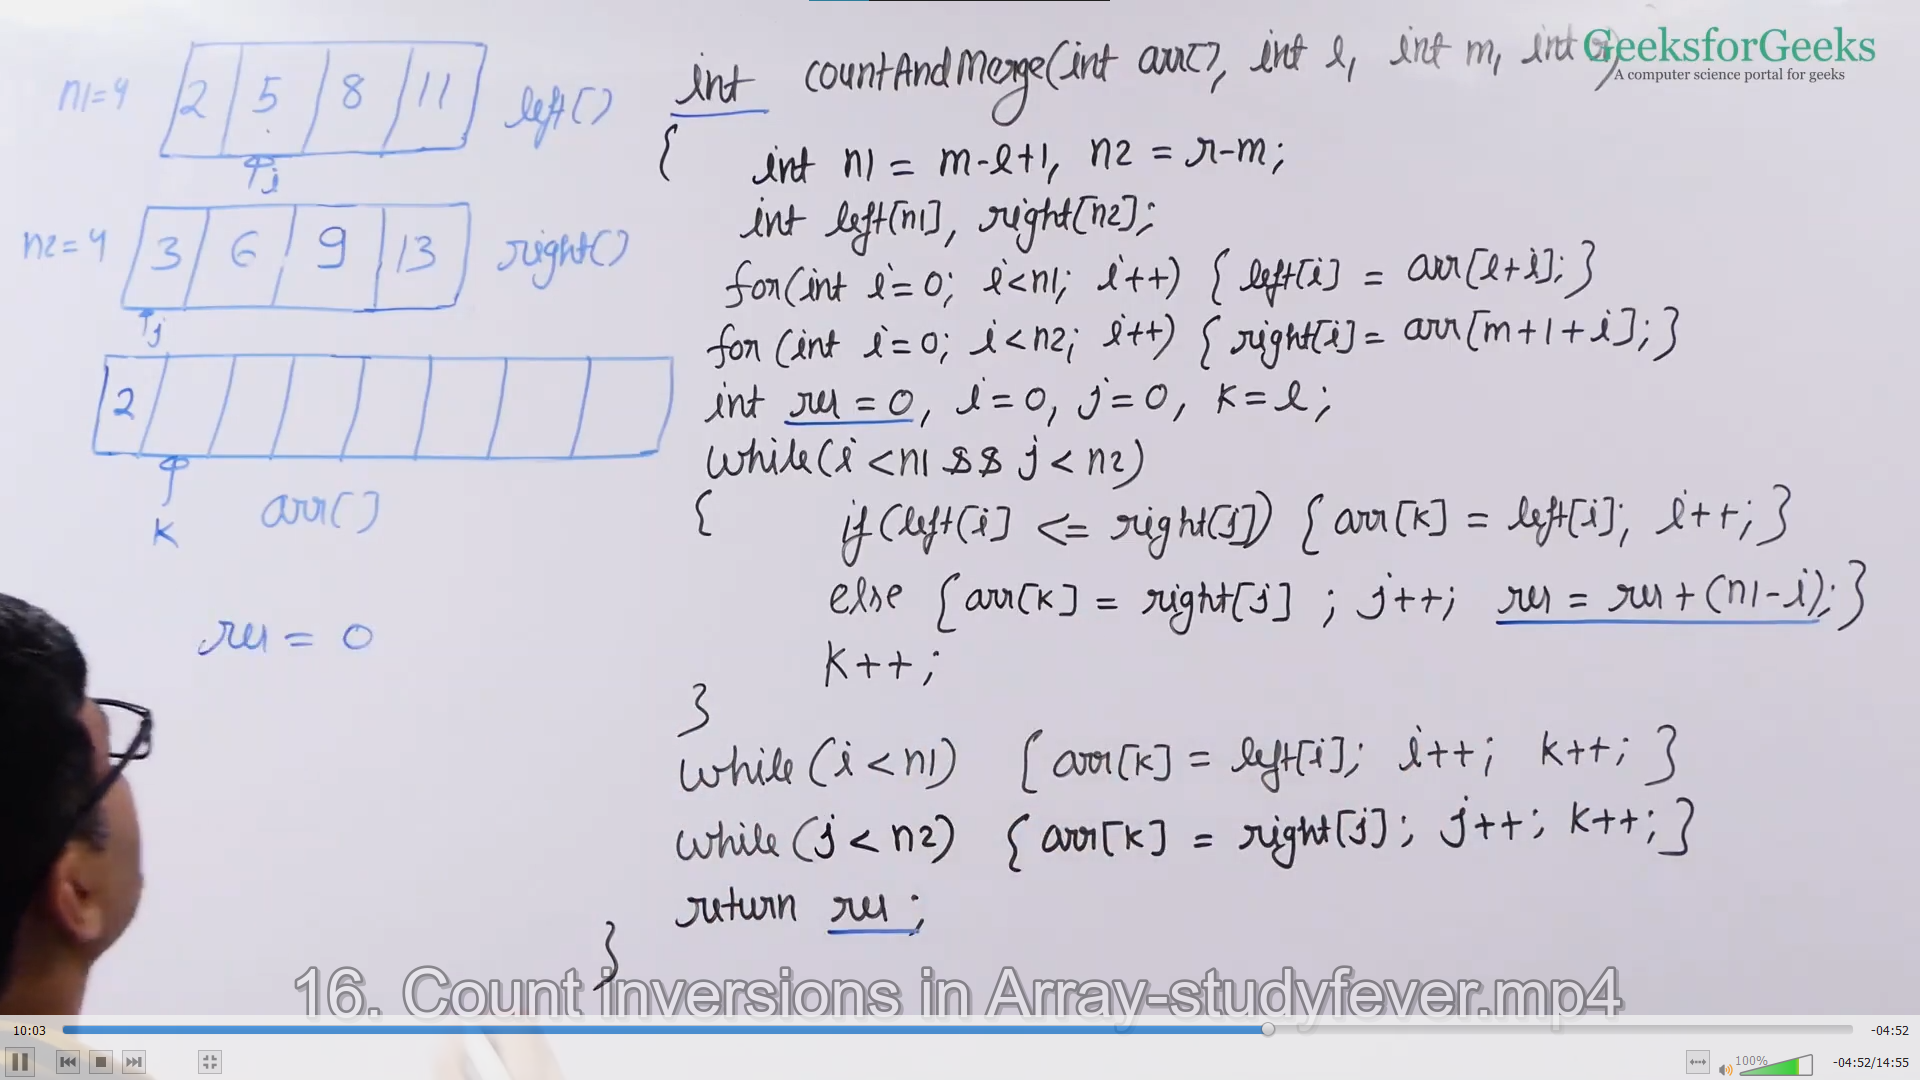 GeeksforGeeks
A computer science portal for geeks
n1=4 2 5 8 11 left[]
i
n2=4 3 6 9 13 right[]
j
2
k arr[]
res = 0
int countAndMerge(int arr[], int l, int m, int r)
{ int n1 = m-l+1, n2 = r-m;
int left[n1], right[n2];
for(int i=0; i<n1; i++) { left[i] = arr[l+i]; }
for (int i=0; i<n2; i++) { right[i] = arr[m+1+i]; }
int res = 0, i=0, j=0, k=l;
while(i<n1 && j<n2)
{ if(left[i] <= right[j]) {arr[k] = left[i]; i++; }
else {arr[k] = right[j] ; j++; res = res + (n1-i); }
k++;
}
while (i<n1) {arr[k] = left[i]; i++; k++; }
while (j<n2) {arr[k] = right[j]; j++; k++; }
return res;
}
16. Count inversions in Array-studyfever.mp4
10:03 -04:52
100% -04:52/14:55